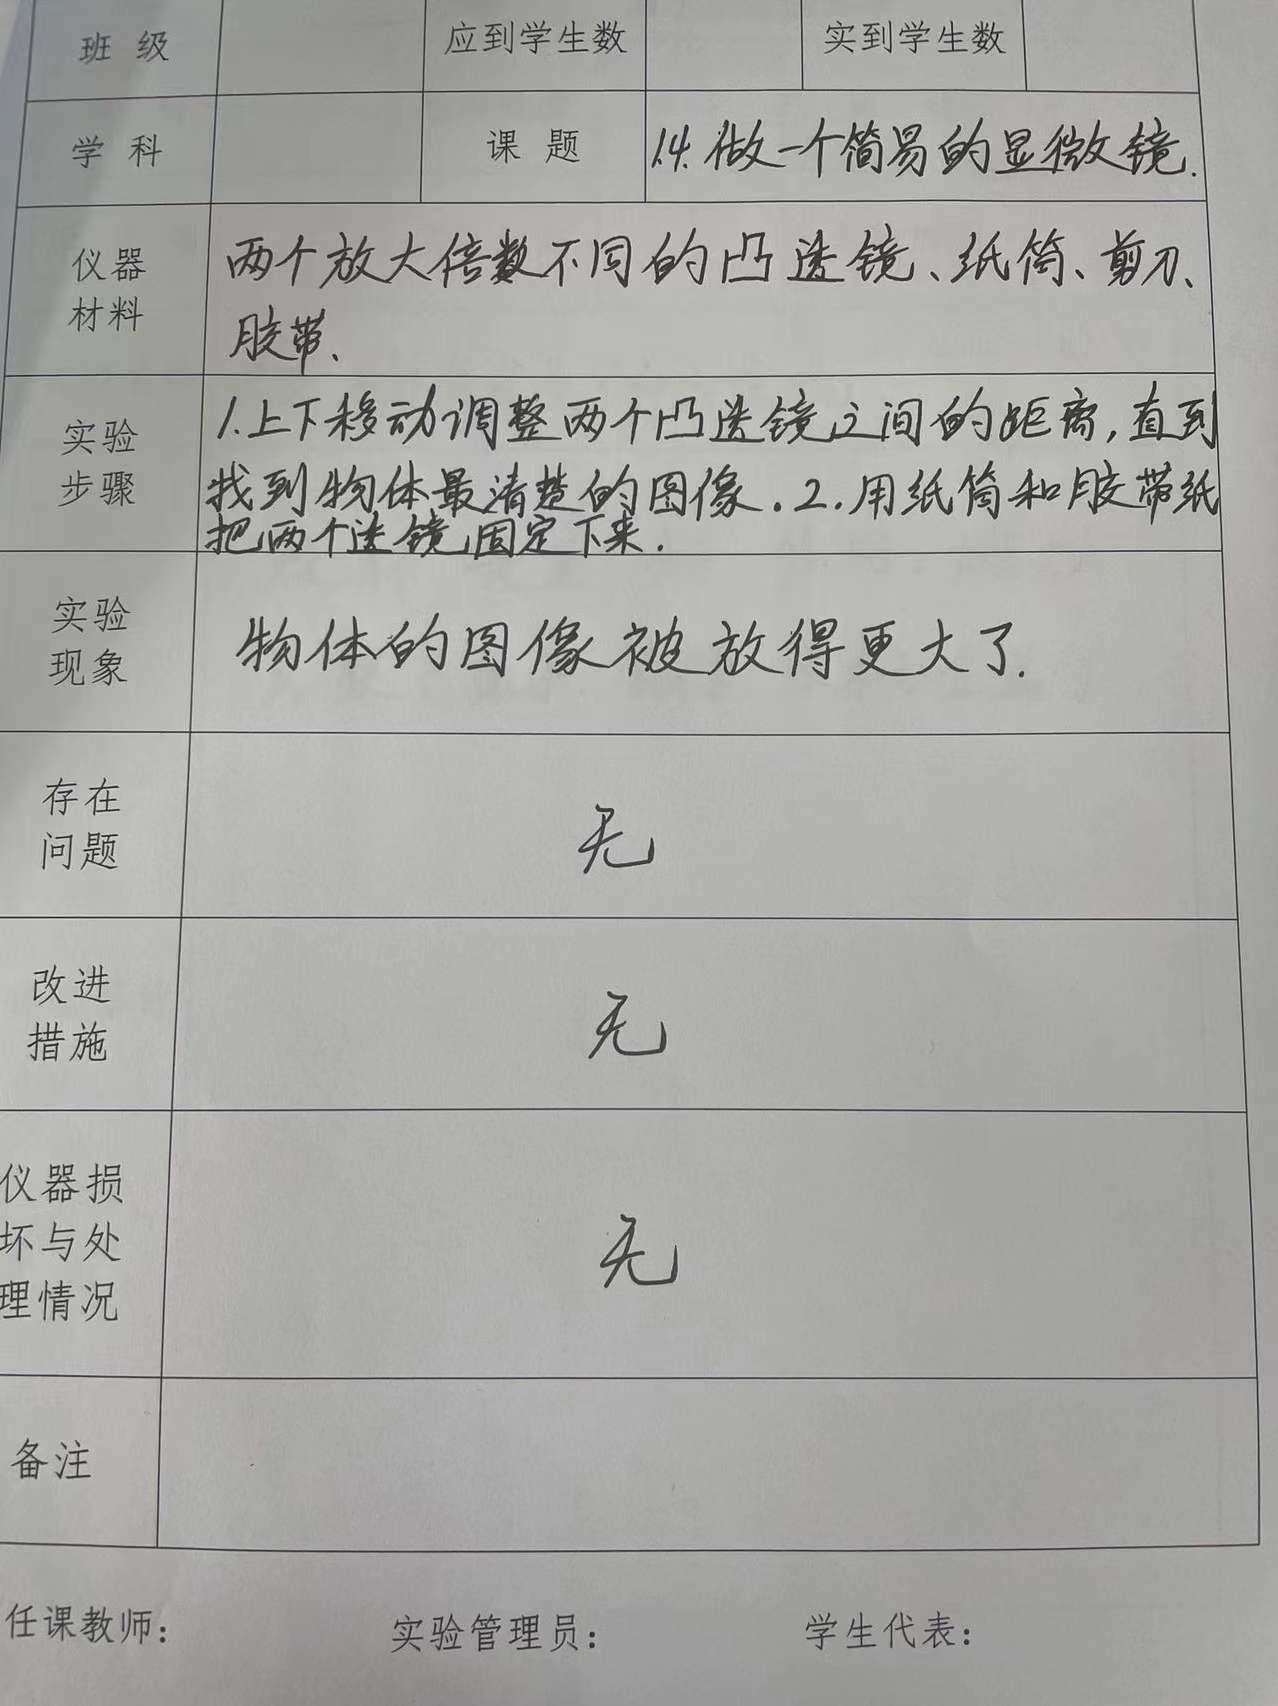 班 级 应到学生数 实到学生数
学 科 课 题 1.4. 做一个简易的显微镜.
仪器
材料
两个放大倍数不同的凸透镜、纸筒、剪刀、
胶带、
实验
步骤
1.上下移动调整两个凸透镜之间的距离,直到
找到物体最清楚的图像.2.用纸筒和胶带纸
把两个透镜固定下来.
实验
现象
物体的图像被放得更大了.
存在
问题
无
改进
措施
无
仪器损
坏与处
理情况
无
备注
任课教师: 实验管理员: 学生代表: